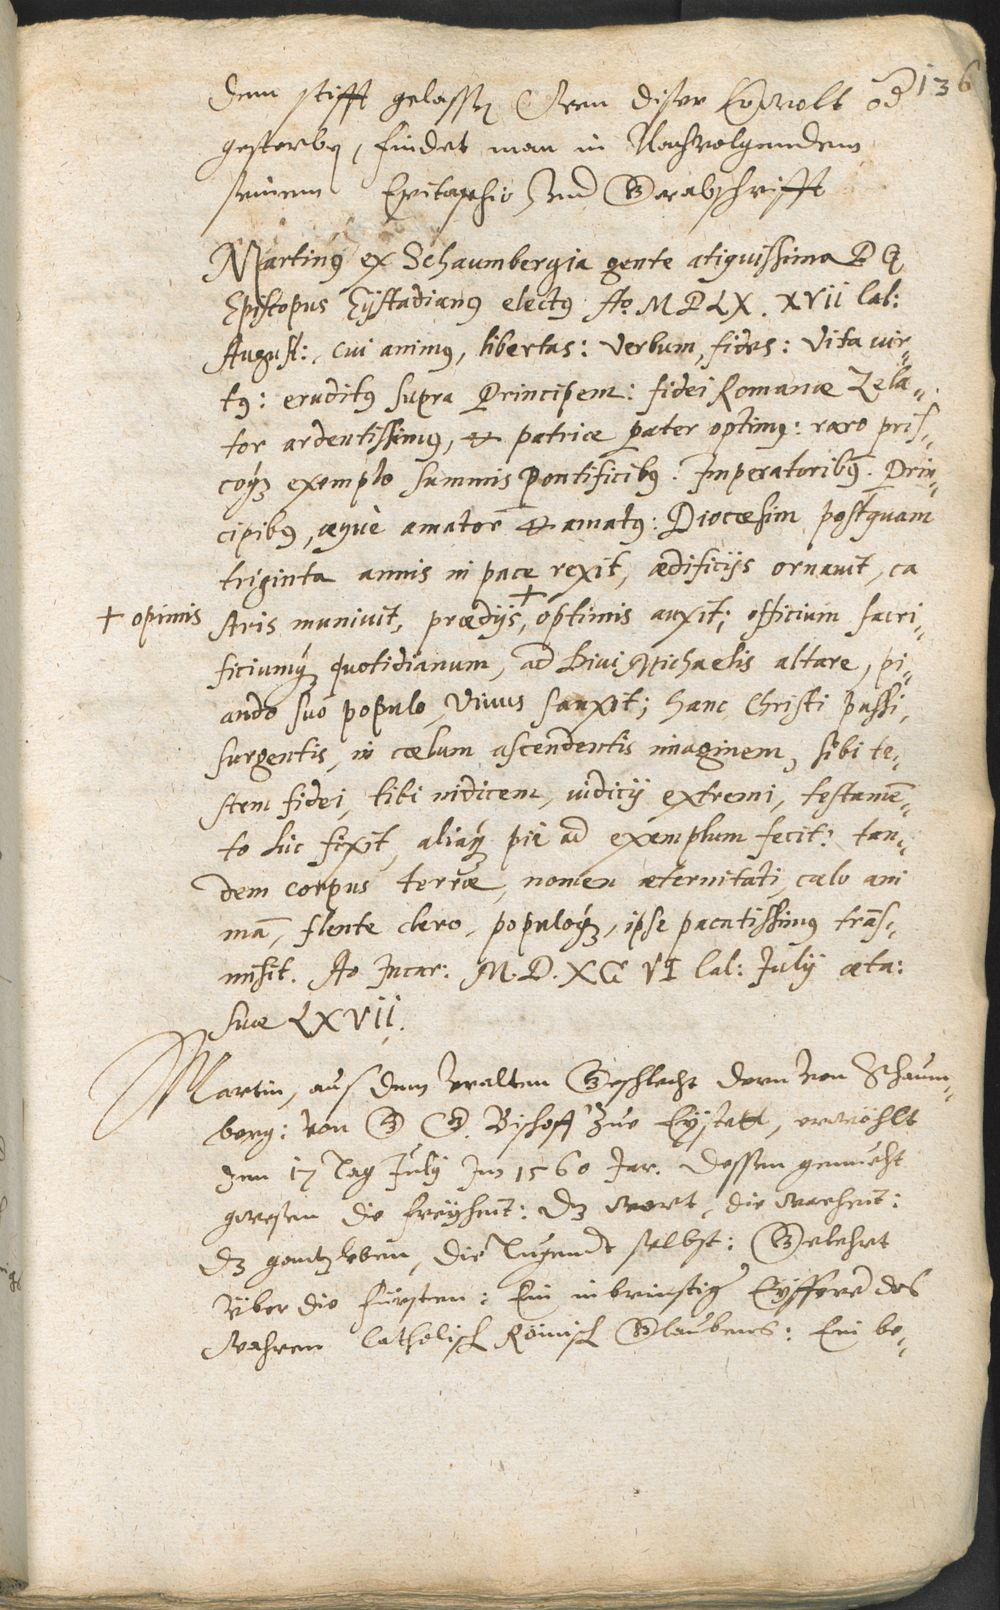 136
dem stifft gelassen Wen diser Erwölt od
gestorben, findet man in Nachvolgendem
seinem Epitaphio und Grabschrifft
Martinꝰ ex Schaumbergia gente atiquissima D G
Episcopus Eÿstadianꝰ electꝰ Ao. M D LX. XVII Cal:
August: cui animꝰ, libertas: Verbum, fides: Vita vir„
tꝰ: eruditꝰ supra Principem: fidei Romanæ Zela„
tor ardentissimꝰ, et patriæ pater optimꝰ: raro pris„
coqꝫ exemplo summis Pontificibꝰ: Imperatoribꝰ: Prin„
cipibꝰ, æquè amator et amatꝰ: Diocæsim postquam
triginta annis in pace rexit, ædificijs ornavit, ca
stris munivit, prædijs, + optimis auxit; officium sacri„
+ opimis
ficiumqꝫ quotidianum, ad Divi Michaelis altare, pi„
ando suo populo, Vivus sanxit; hanc Christi passi,
surgentis, in cælum ascendentis imaginem, sibi te„
stem fidei, tibi iudicem, iudicij extremi, testamē„
to hic fixit, aliaqꝫ pie ad exemplum fecit: tan„
dem corpus terræ, nomen æternitati, cælo ani
mā, flente clero, populoqꝫ, ipse pacatissimꝰ trās„
misit. Ao Incar: M. D. XC VI Cal: Julij æta:
suæ LXVII.
Martin, aus dem uralten Geschlecht deren von Schaum„
berg: von G G. Bischoff zue Eÿstett, erwöhlt
den 17 Tag Julÿ Im 1560 Jar. Dessen gemüeht
gwesen die freÿheit: dz wort, die warheit:
dz gantz leben, die Tugendt selbst: Gelehrt
über die fürsten: Ein inbrünstiger Eÿfferer des
wahren Catholisch Römisch Glaubens: Ein be„